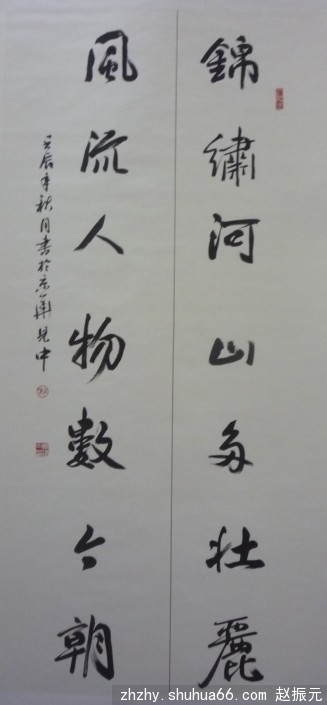 錦繡河山多壮麗
風流人物數今朝
壬辰年秋月書於京華
zhzhy.shuhua66.com 赵振元